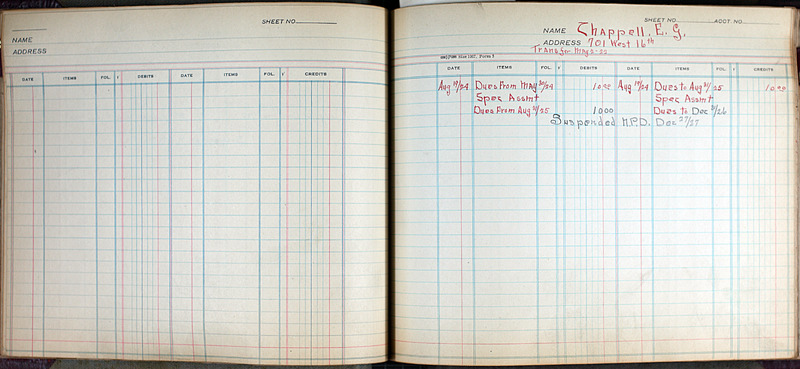 SHEET NO.
NAME
ADDRESS
DATE ITEMS FOL. DEBITS DATE ITEMS FOL. CREDITS
SHEET NO. ACCT. NO.
NAME Chappell. E. G.
ADDRESS 701 West 16th
Transfer May
DATE ITEMS FOL. DEBITS DATE ITEMS FOL. CREDITS
Aug 19/24 Dues From May /24 Aug 19/24 Dues to Aug /25
Spec Assmt Spec Assmt
Dues From Aug /25 1000 Dues to Dec /26
Suspended N.P.D. Dec 27/27